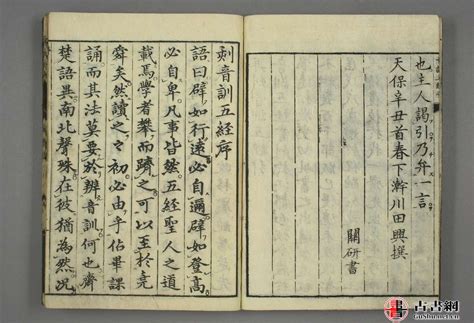 也主人謁引乃弁一言
天保辛丑首春下澣川田興撰
關研書
刻音訓五經序
語曰辟如行遠必自邇辟如登高
必自卑凡事皆然五經聖人之道
載焉學者攀而躋之可以至於堯
舜矣然讀之之初必由手佔畢課
誦而其法莫要於辨音訓何也齊
楚語異南北聲殊在彼猶為然況
書
古書網
GuShu.net.cn